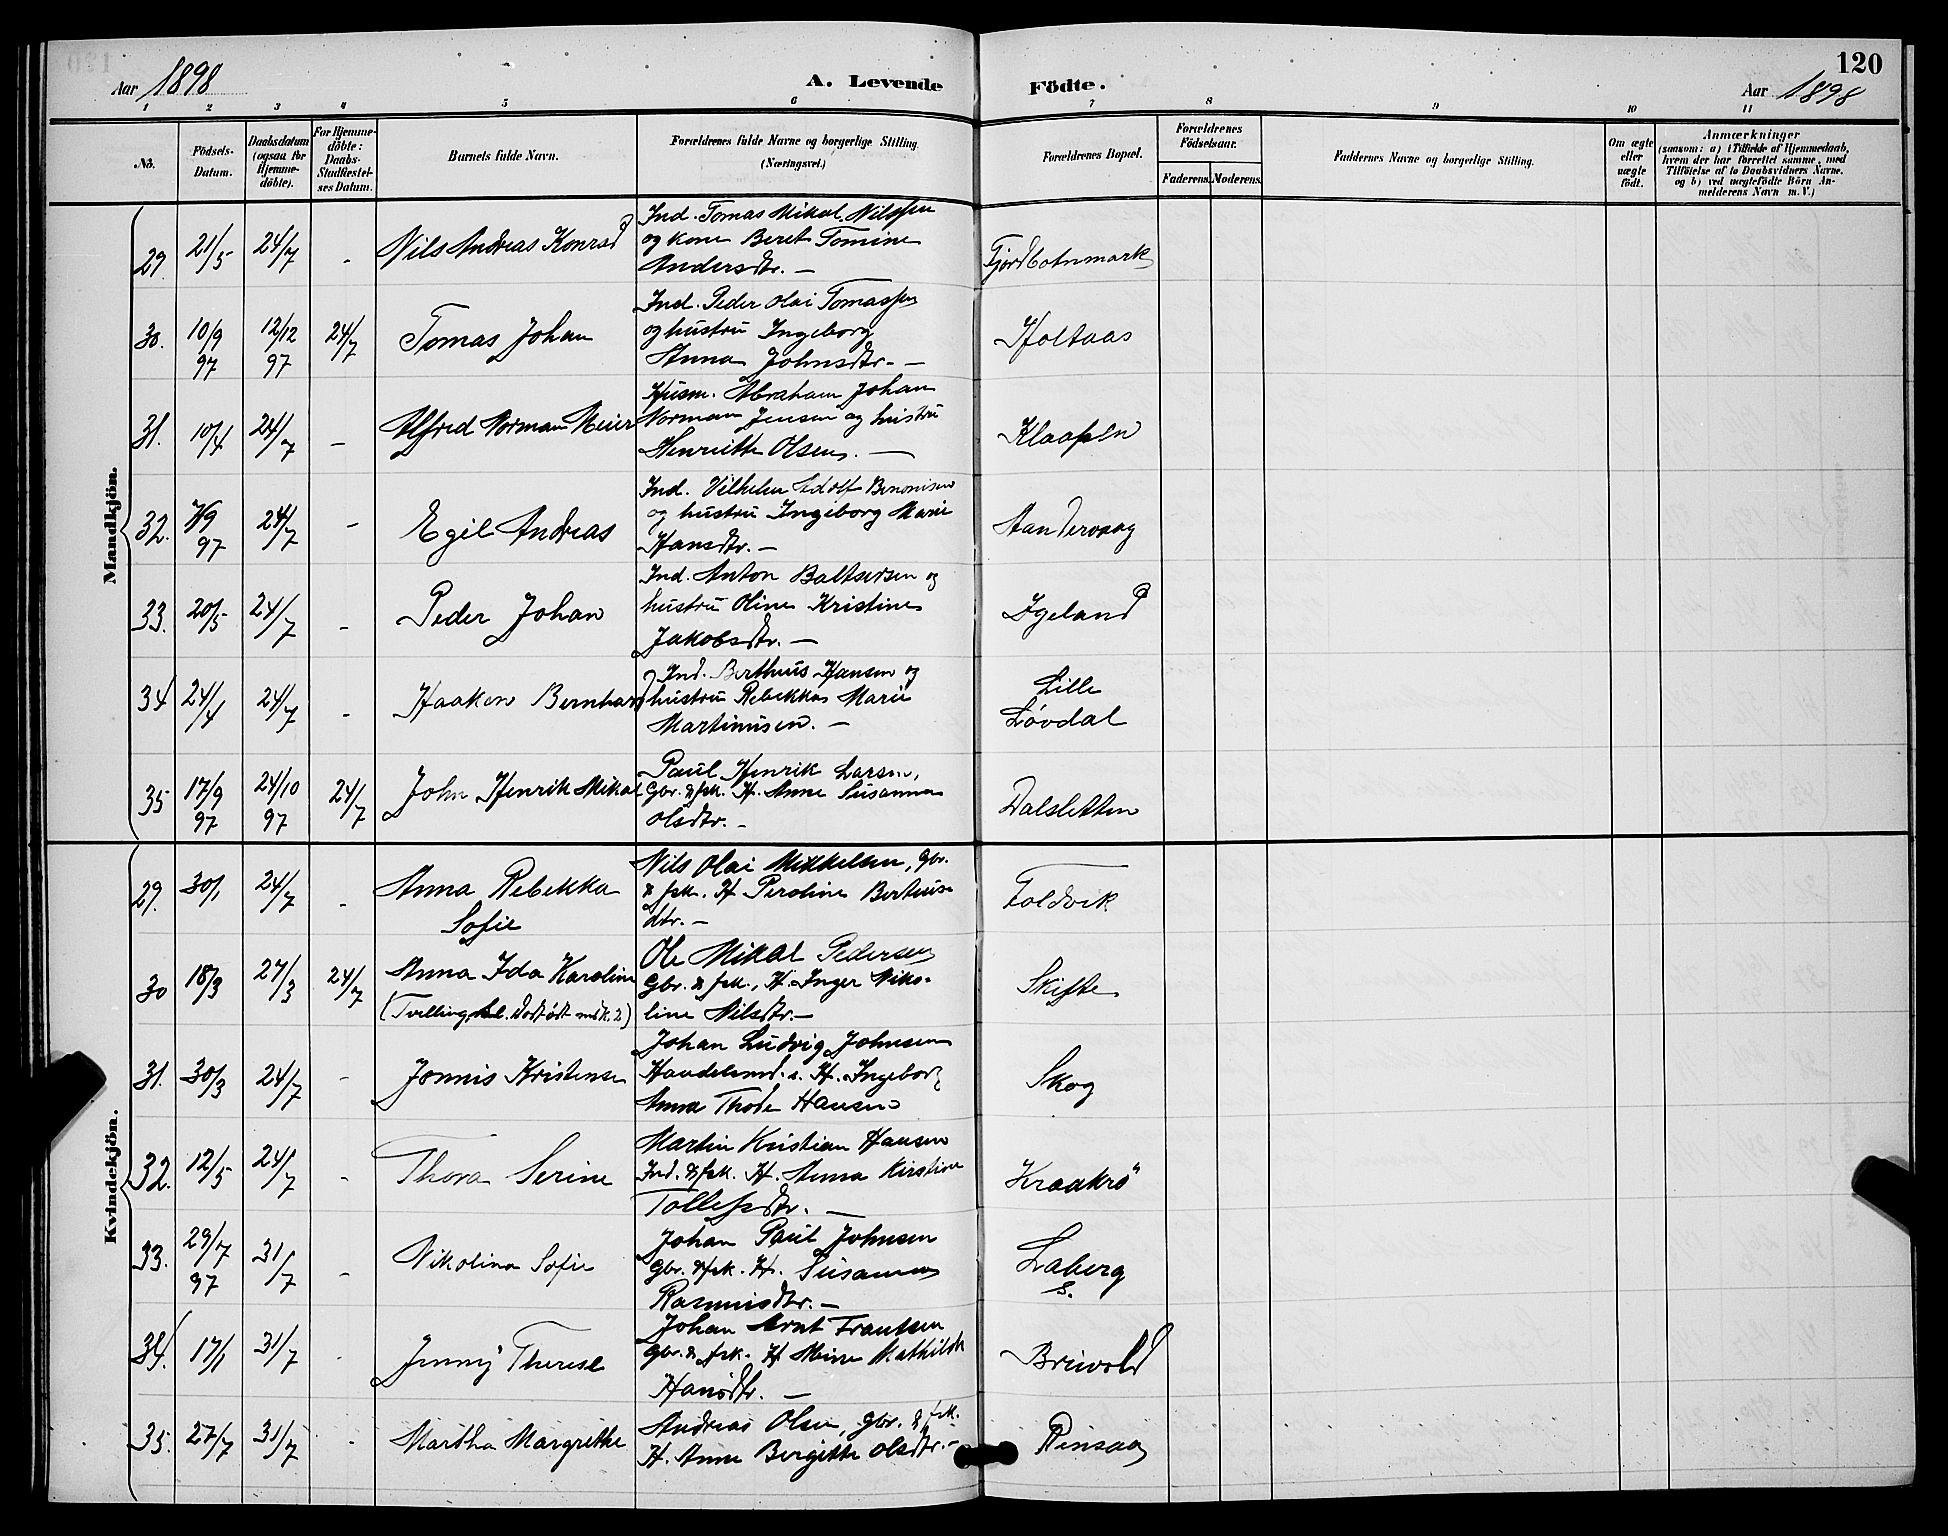 120
Aar 1898
A. Levende Födte.
Aar 1898
1 2 3 4 5 6 7 8 9 10 11
No.
Födsels-Datum.
Daabsdatum (ogsaa for Hjemme-döbte).
For Hjemme-döbte: Daabs-Stadfæstel-ses Datum.
Barnets fulde Navn.
Forældrenes fulde Navne og borgerlige Stilling. (Næringsvei.)
Forældrenes Bopæl.
Forældrenes Födselsaar.
Faderens. Moderens.
Faddernes Navne og borgerlige Stilling.
Om ægte eller uægte födt.
Anmærkninger
(saasom: a) i Tilfælde af Hjemmedaab,
hvem der har forrettet samme, med
Tilföielse af to Daabsvidners Navne.
og b) ved uægtefödte Börn An-
melderens Navn m. V.)
Mandkjön.
29. 21/5 24/7 - Nils Andreas Konrad
Ind. Tomas Mikal Nilssen
og kone Beret Tomine
Andersdtr. —
Fjordbotnmark
30. 10/9 97 12/12 97 24/7 Tomas Johan
Ind. Peder Olai Tomassen
og hustru Ingeborg
Anna Johnsdtr. —
Holtaas
31. 10/4 24/7 - Alfred Norman Meier
Husm. Abraham Johan
Norman Jensen og hustru
Henriette Olsen. —
Klaapen
32. 97 24/7 - Egil Andreas
Ind. Vilhelm Adolf Benonisen
og hustru Ingeborg Marie
Hansdtr. —
Aandervaag
33. 20/5 24/7 - Peder Johan
Ind. Anton Baltsersen og
hustru Oline Kristine
Jakobsdtr. —
Igeland
34 24/4 24/7 - Haakon Bernhard
Ind. Bertheus Hansen og
hustru Rebekka Marie
Martinusen. —
Lille
Lövdal
35 17/9 97 24/10 97 24/7 John Henrik Mikal
Paul Henrik Larsen,
Gbr. & fsk. H. Anne Susanna
Olsdtr. -
Dalsletten
Kvindekjön.
29. 30/1 24/7 - Anna Rebekka
Sofie
Nils Olai Mikkelsen, Gbr.
& fsk. H Peroline Bertheus
dtr. —
Foldvik
30 18/3 27/3 24/7 Anna Ida Karoline
(Tvilling, Dödfödt mdk. 2)
Ole Mikal Pedersen
Gbr. & fsk., H. Inger Niko-
line Nilsdtr. —
Skifte
31. 30/3 24/7 - Jonnis Kristense
Johan Ludvig Johnsen
Handelsmd. H. Ingeborg
Anna Thode Hansen
Skog
32. 12/5 24/7 - Thora Serine
Martin Kristian Hansen
Ind. & fsk. H. Anna Kirstine
Tollefsdtr. —
Kraakrö
33. 29/7 97 31/7 - Nikolina Sofie
Johan Paul Johnsen
Gbr. & fsk. H. Susanna
Rasmusdtr. —
Laberg
S.
34. 17/1 31/7 - Jenny Therese
Johan Arnt Frantsen
Gbr. & fsk. H Mathilde
Hansdtr. —
Breivold
35. 27/7 31/7 - Martha Margrethe
Andreas Olsen, Gbr. & fsk.
H. Anne Bergitte Olsdtr. -
Rensaa